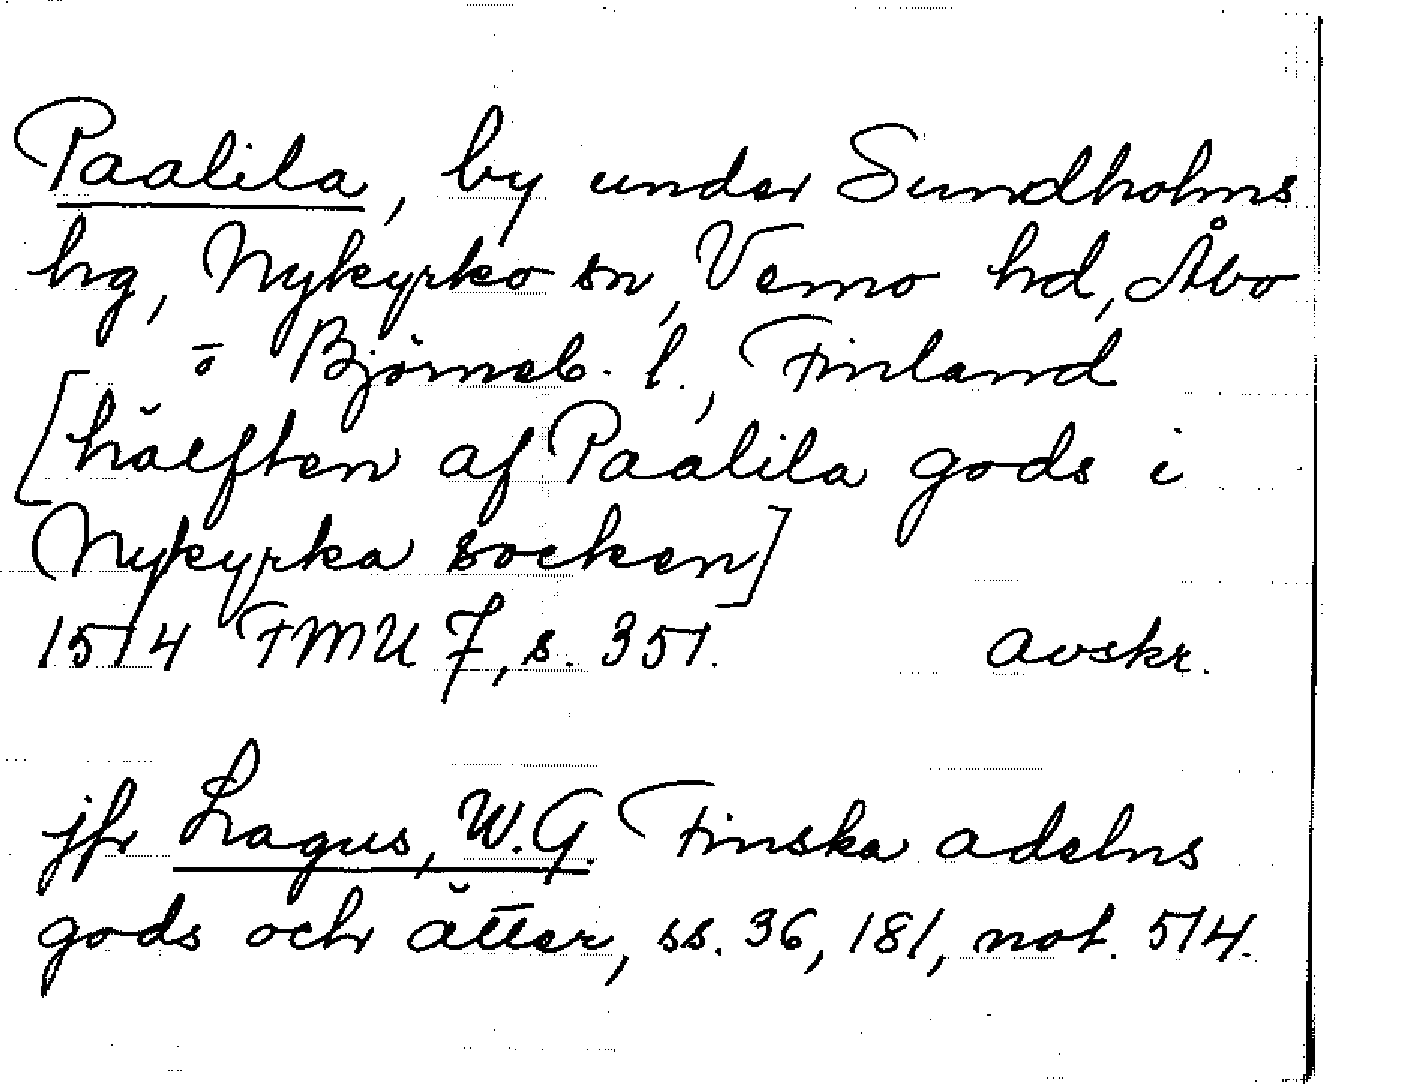 Paalila, by under Sundholms
hrg, Nykyrko sn, Vemo hd, Åbo
o Björneb. l., Finland
[hälften af Paalila gods i
Nykyrka socken]
1514 FMU 7, s. 351. avskr.
jfr Lagus, W.G. Finska adelns
gods och ätter, ss. 36, 181, not. 514.